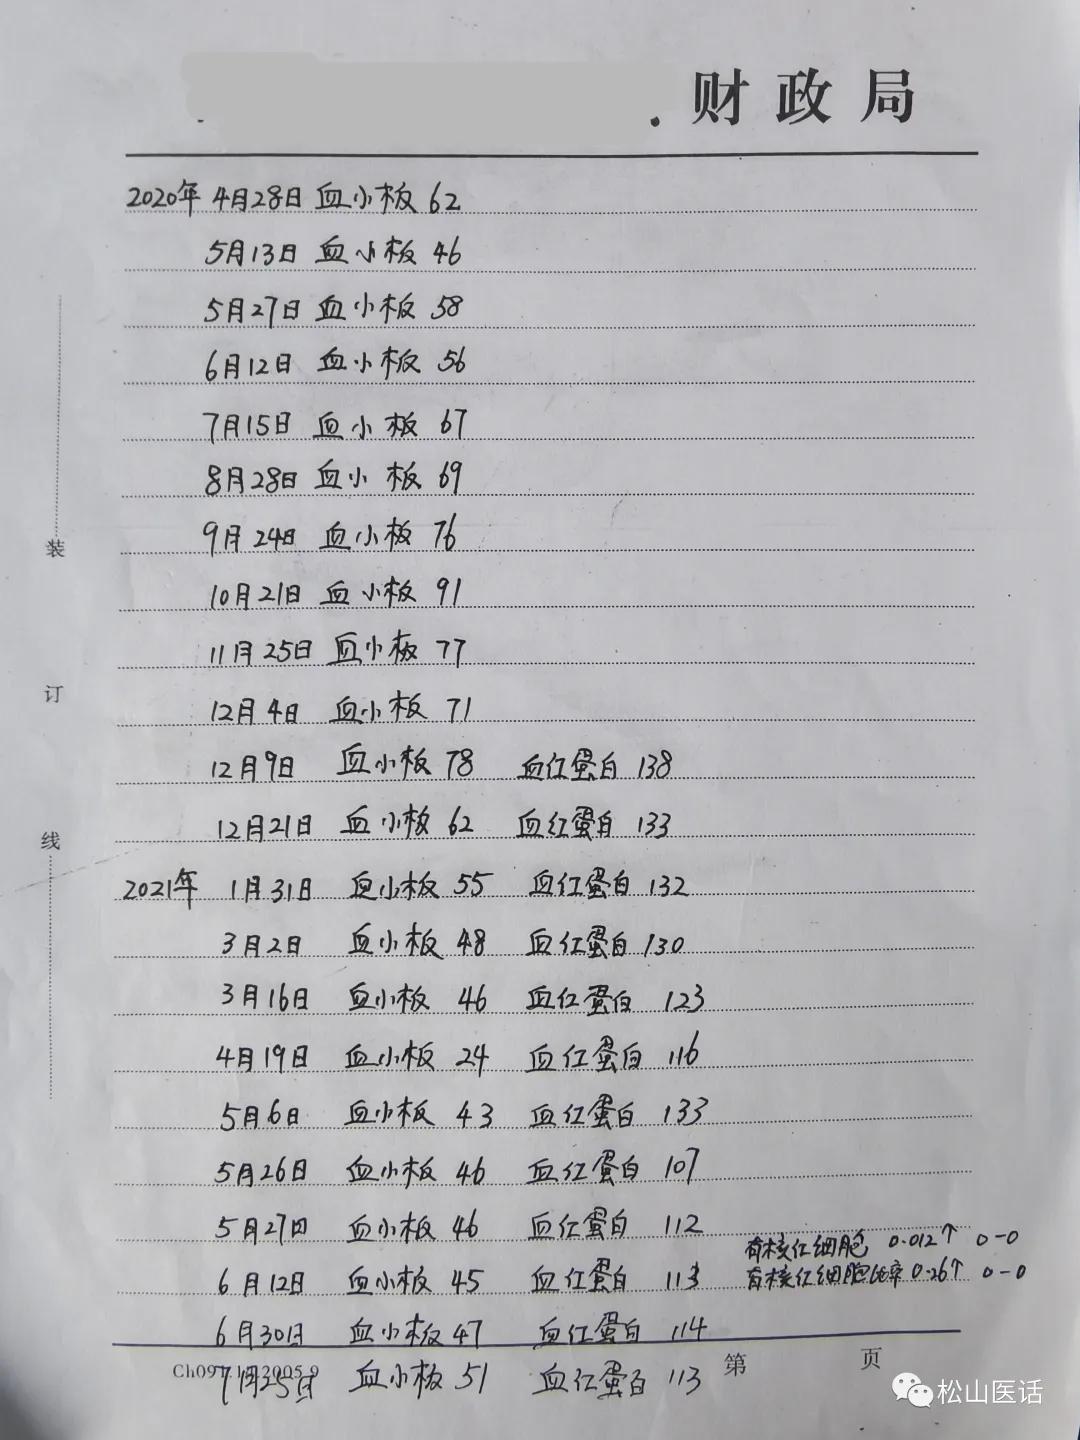 财政局
2020年 4月28日 血小板 62
5月13日 血小板 46
5月27日 血小板 58
6月12日 血小板 56
7月15日 血小板 67
8月28日 血小板 69
9月24日 血小板 76
10月21日 血小板 91
11月25日 血小板 77
12月4日 血小板 71
12月9日 血小板 78 血红蛋白 138
12月21日 血小板 62 血红蛋白 133
2021年 1月31日 血小板 55 血红蛋白 132
3月2日 血小板 48 血红蛋白 130
3月16日 血小板 46 血红蛋白 123
4月19日 血小板 24 血红蛋白 116
5月6日 血小板 43 血红蛋白 133
5月26日 血小板 46 血红蛋白 107
5月27日 血小板 46 血红蛋白 112
有核红细胞 0.012↑ 0-0
6月12日 血小板 45 血红蛋白 113
有核红细胞比率 0.26↑ 0-0
6月30日 血小板 47 血红蛋白 114
7月25日 血小板 51 血红蛋白 113
第 页
装
订
线
松山医话